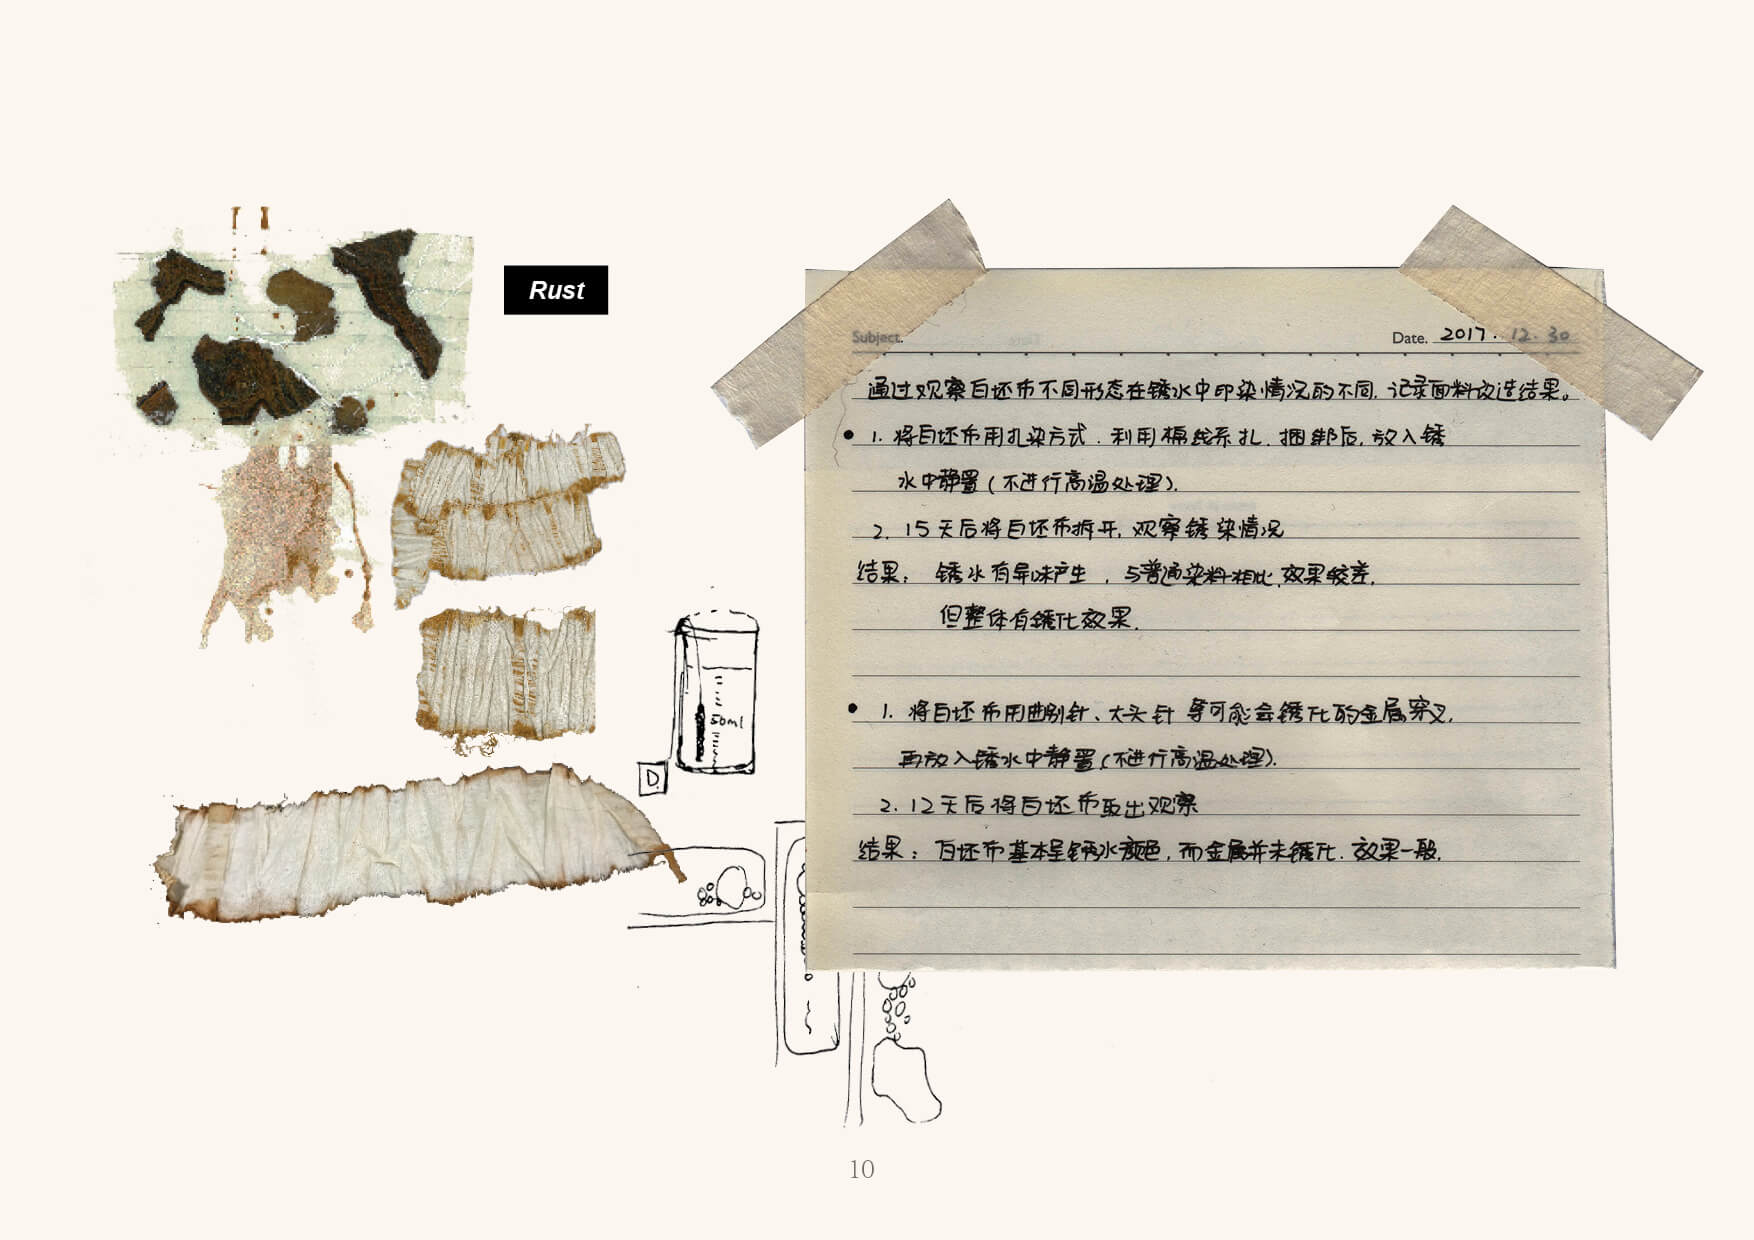 Rust
Subject.
Date. 2017. 12. 30
通过观察白坯布不同形态在锈水中印染情况的不同, 记录面料改造结果。
• 1. 将白坯布用扎染方式. 利用棉线系扎. 捆绑后, 放入锈
水中静置(不进行高温处理).
2. 15天后将白坯布拆开, 观察锈染情况
结果: 锈水有异味产生, 与普通染料相比, 效果较差,
但整体有锈化效果.
• 1. 将白坯布用曲别针、大头针等可能会锈化的金属穿叉,
再放入锈水中静置(不进行高温处理).
2. 12天后将白坯布取出观察
结果: 白坯布基本呈锈水颜色, 而金属并未锈化. 效果一般.
50ml
D.
10